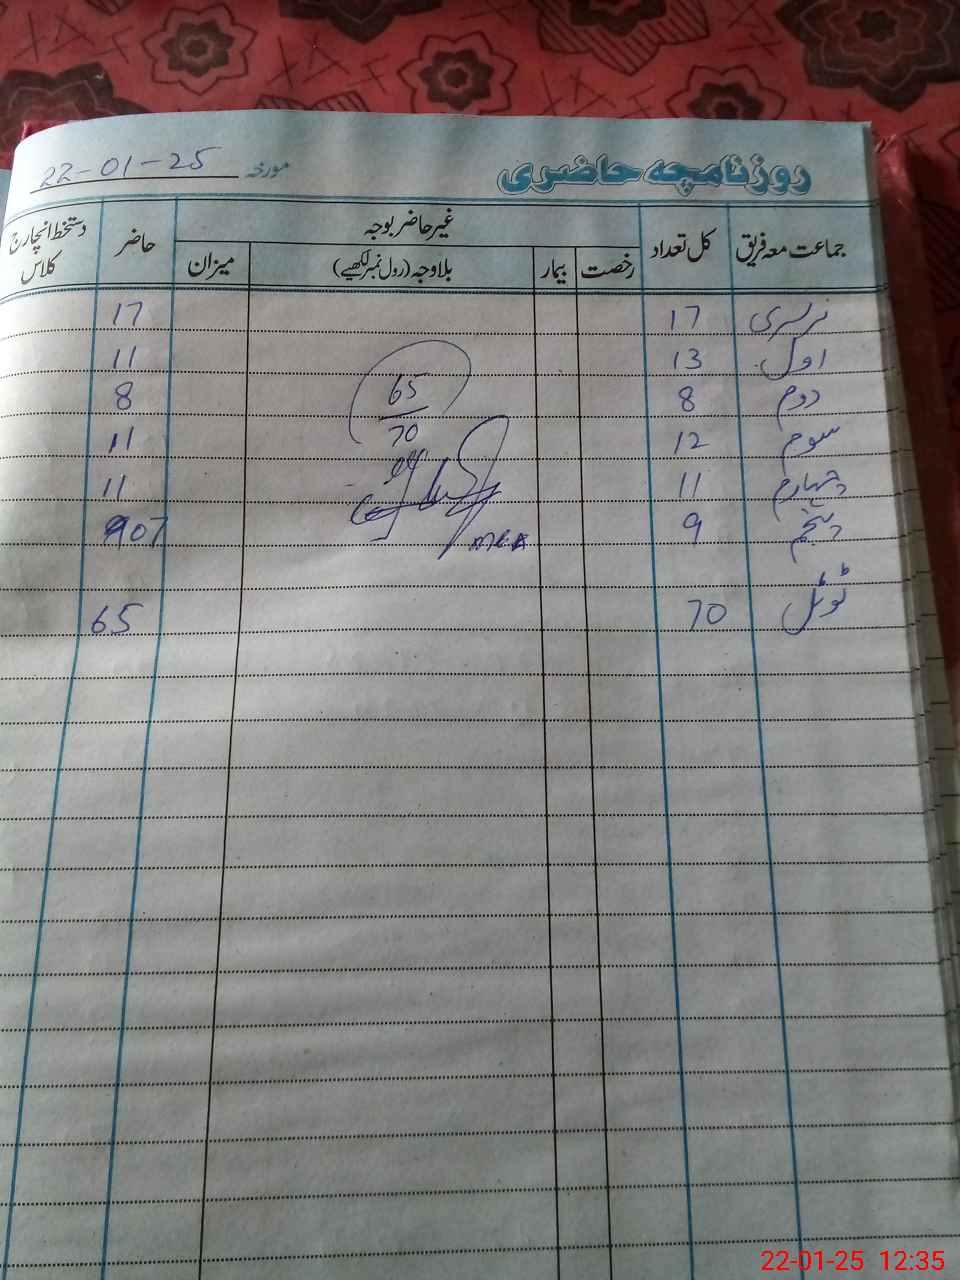 روزنامچہ حاضری مورخہ 22-01-25
جماعت معہ فریق کل تعداد غیر حاضر بوجہ حاضر دستخط انچارج کلاس
رخصت بیمار بلاوجہ (رول نمبر لکھیے) میزان
نرسری 17 17
اول 13 11
دوم 8 8
65
70
سوم 12 11
چہارم 11 11
پنجم 9 07
MEA
ٹوٹل 70 65
22-01-25 12:35